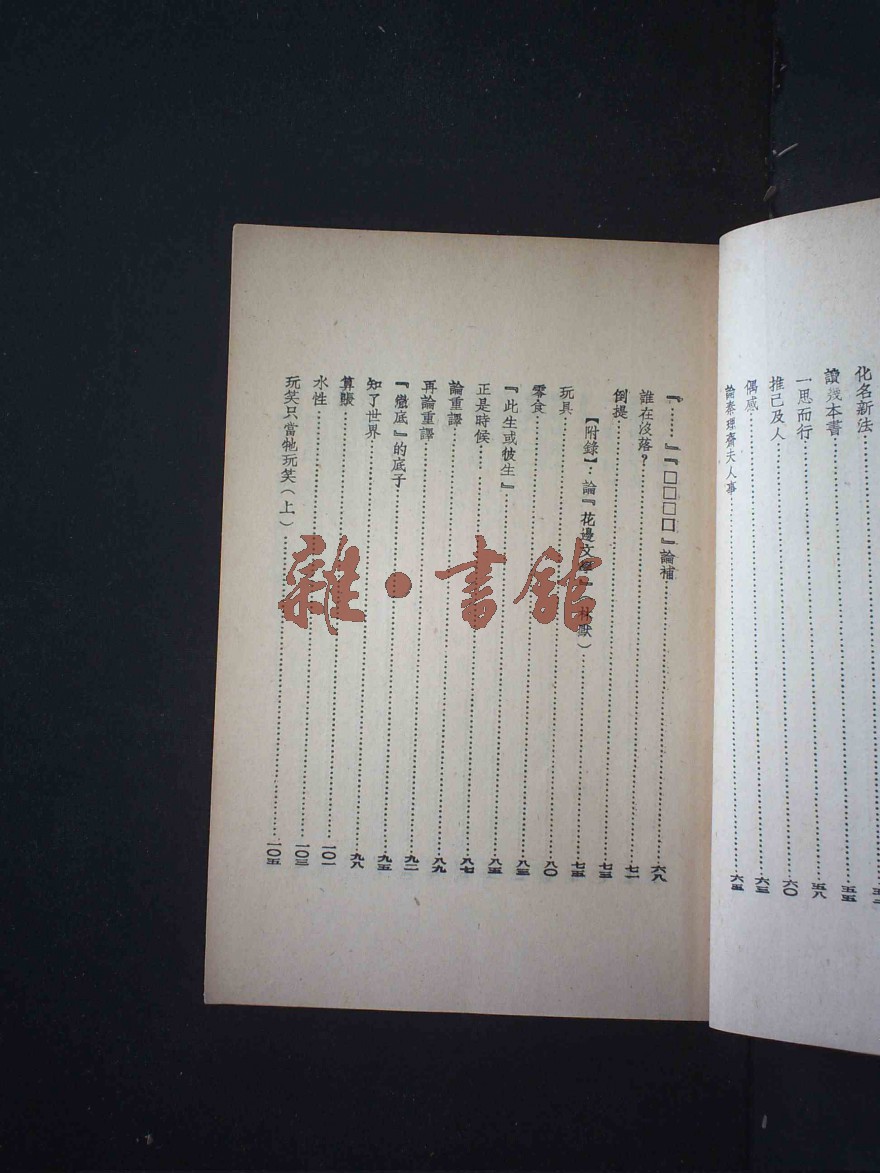 化名新法……
讀幾本書……五五
一思而行……五八
推己及人……六〇
偶感……六三
論秦理齋夫人事……六五
『……』『□□□□』論補……六八
誰在沒落?……七一
倒提……七三
【附錄】:論『花邊文學』(林默)……七五
玩具……八〇
零食……八三
『此生或彼生』……八五
正是時候……八七
論重譯……八九
再論重譯……九二
『徹底』的底子……九五
知了世界……九八
算賬……一〇一
水性……一〇三
玩笑只當牠玩笑(上)……一〇五
雜·書館